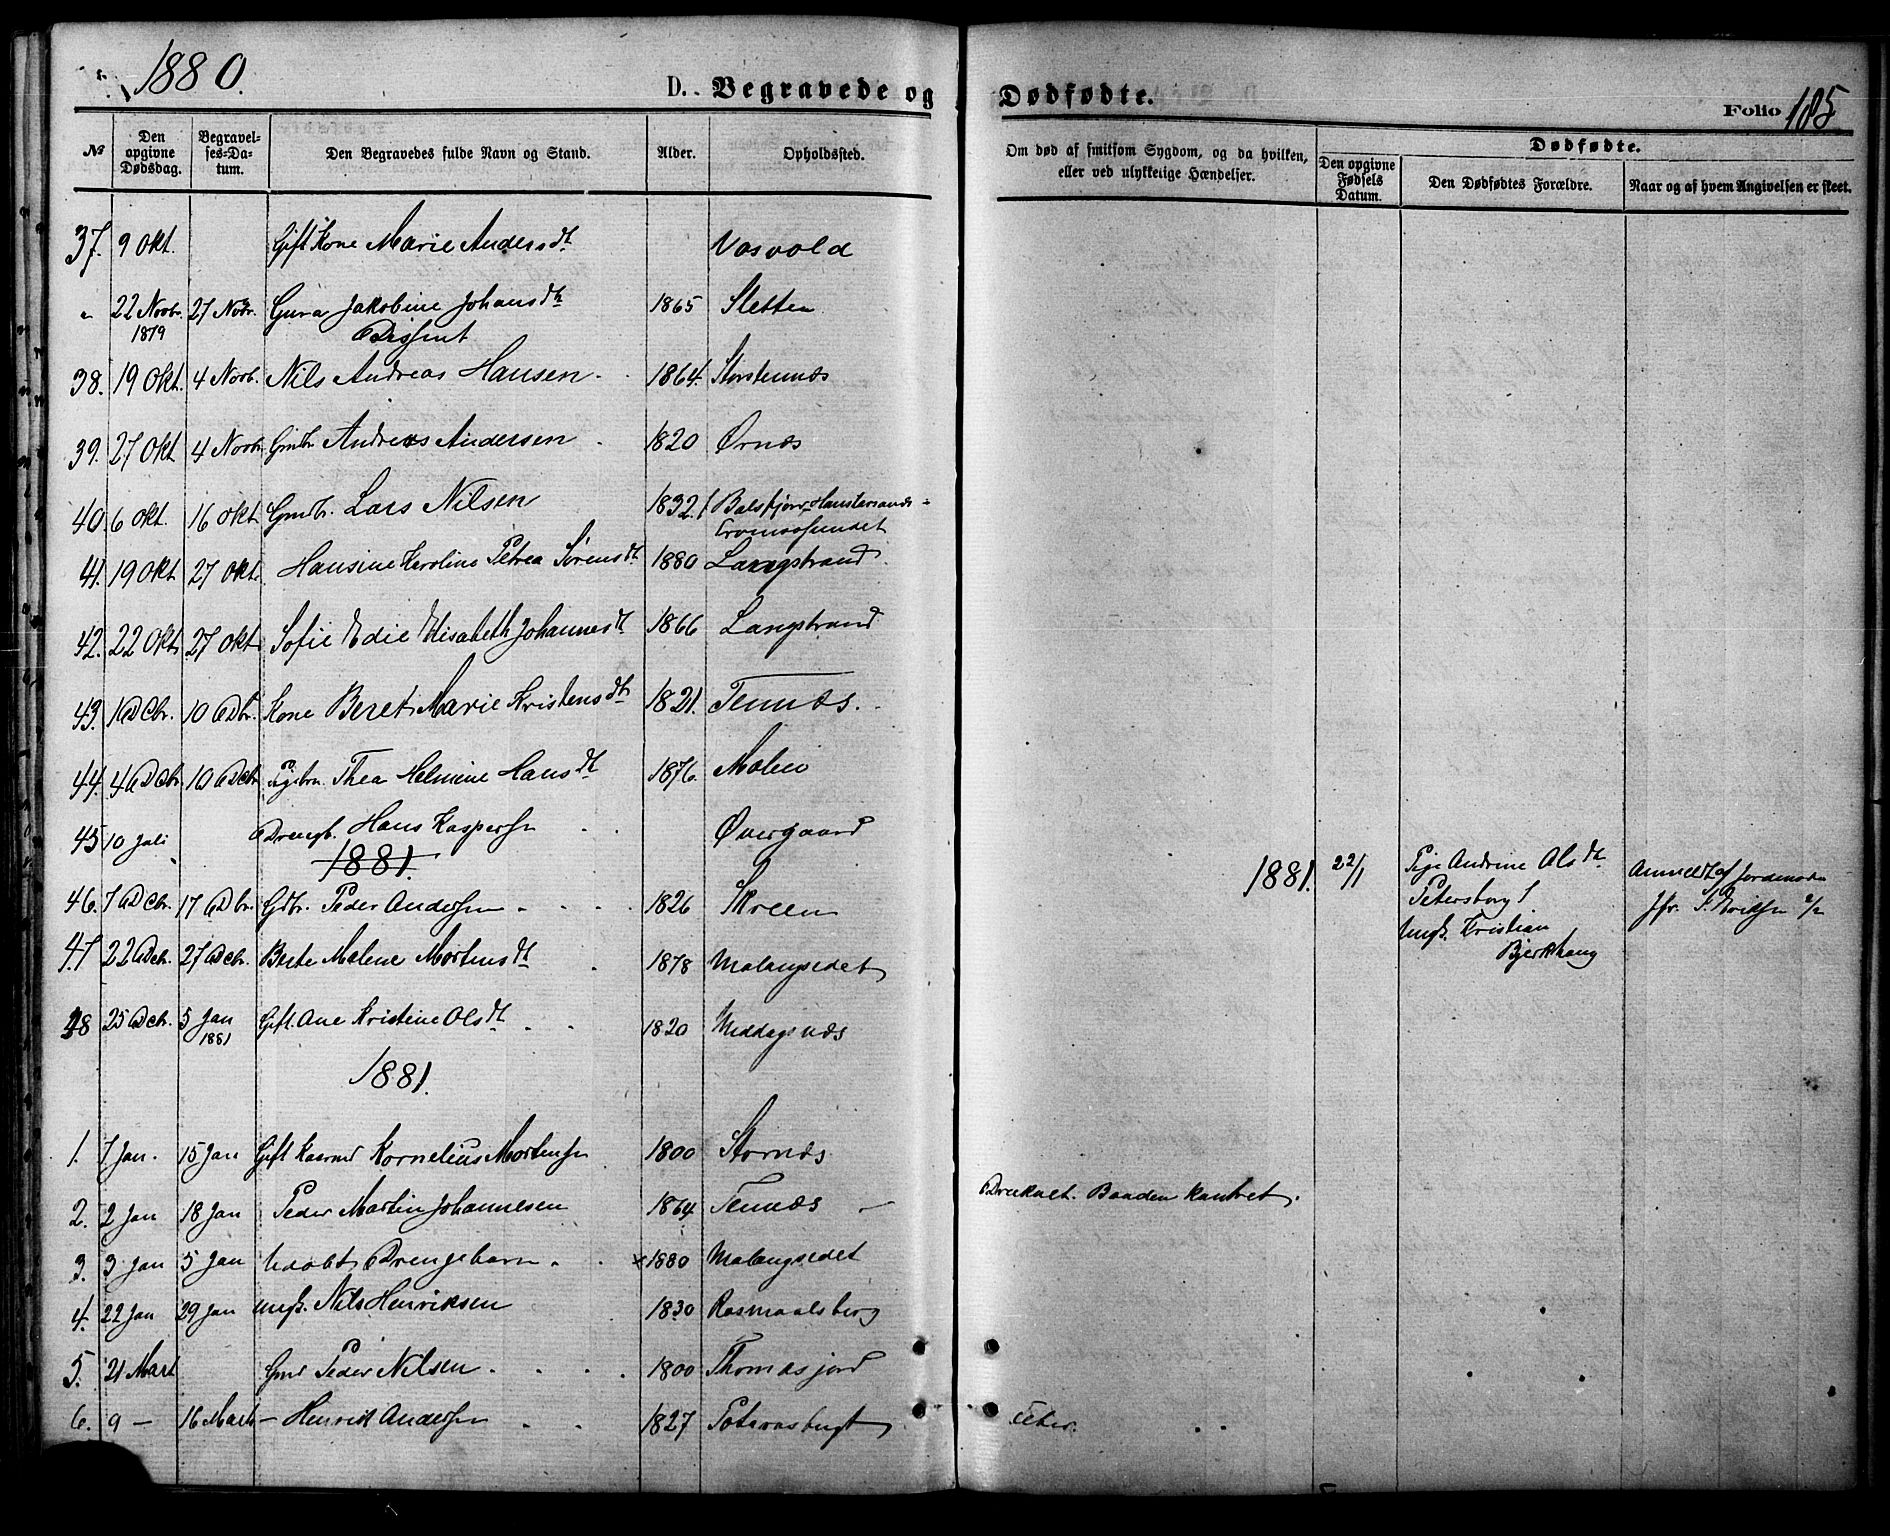 1880.
D. Begravede og Dødfødte.
Folio 185
№ | Den opgivne Dødsdag. | Begravelses-Datum. | Den Begravedes fulde Navn og Stand. | Alder. | Opholdssted. | Om død af smitsom Sygdom, og da hvilken, eller ved ulykkelige Hændelser. | Dødfødte. | Den opgivne Fødsels Datum. | Den Dødfødtes Forældre. | Naar og af hvem Angivelsen er skeet.
37. 9 Okt. Gift Kone Marie Andersdt Vasvold
" 22 Novbr. 27 Nobr. Gura Jakobine Johansdtr 1865 Sletten
1879 Dissent
38. 19 Okt. 4 Novb. Nils Andreas Hansen 1864. Storstennæs
39. 27 Okt 4 Novbr. Gmbr. Andreas Andersen 1820 Ørnæs
40. 6 Okt. 16 Okt. Gmdbr. Lars Nilsen 1832. Balsfjord
Tromsøsundet
41. 19 Okt 27 Okt. Hansine Karoline Petrea Sørensdt. 1880 Langstrand.
42. 22 Okt. 27 Okt Sofie Edie Elisabeth Johannesdt. 1866 Langstrand
43. 1 Dcbr. 10 Dbr. Kone Beret Marie Kristensdtr 1821. Tennæs.
44. 4 Dcbr. 10 Dcbr. Pigebrn. Thea Helmine Hansdt 1876. Malen
45 10 Juli Drengb. Hans Kaspersen Øvergaard
1881.
46. 7 Dcbr. 17 Dbr. Gdbr. Peder Andersen 1826 Skreen
47. 22 Dcbr. 27 Dcbr. Berte Malene Mortensdt. 1878 Malangseidet
48 25 Dcbr. 5 Jan Gift. Ane Kristine Olsdt 1820 Middagsnæs
1881
1881. 22/1 Pige Andrine Olsdt. Anmeldt af Jordemoder
Petersborg
Ungk. Kristian Jfr. Eriksen
Bjerkhaug
1881.
1. 7 Jan. 15 Jan Gift Kaarmd Kornelius Mortensen 1800 Stornæs
2. 2 Jan 18 Jan Peder Martin Johannesen 1864 Tennæs Druknet. Baaden kantret.
3. 3 Jan 5 Jan Udøbt Drengebarn 1880 Malangseidet
4. 22 Jan 29 Jan Ungk. Nils Henriksen 1830 Rasmaalsberg
5. 21 Mart Gmd Peder Nilsen 1800 Thomasjord
6. 9 – 16 Marts – Henrik Andersen 1827